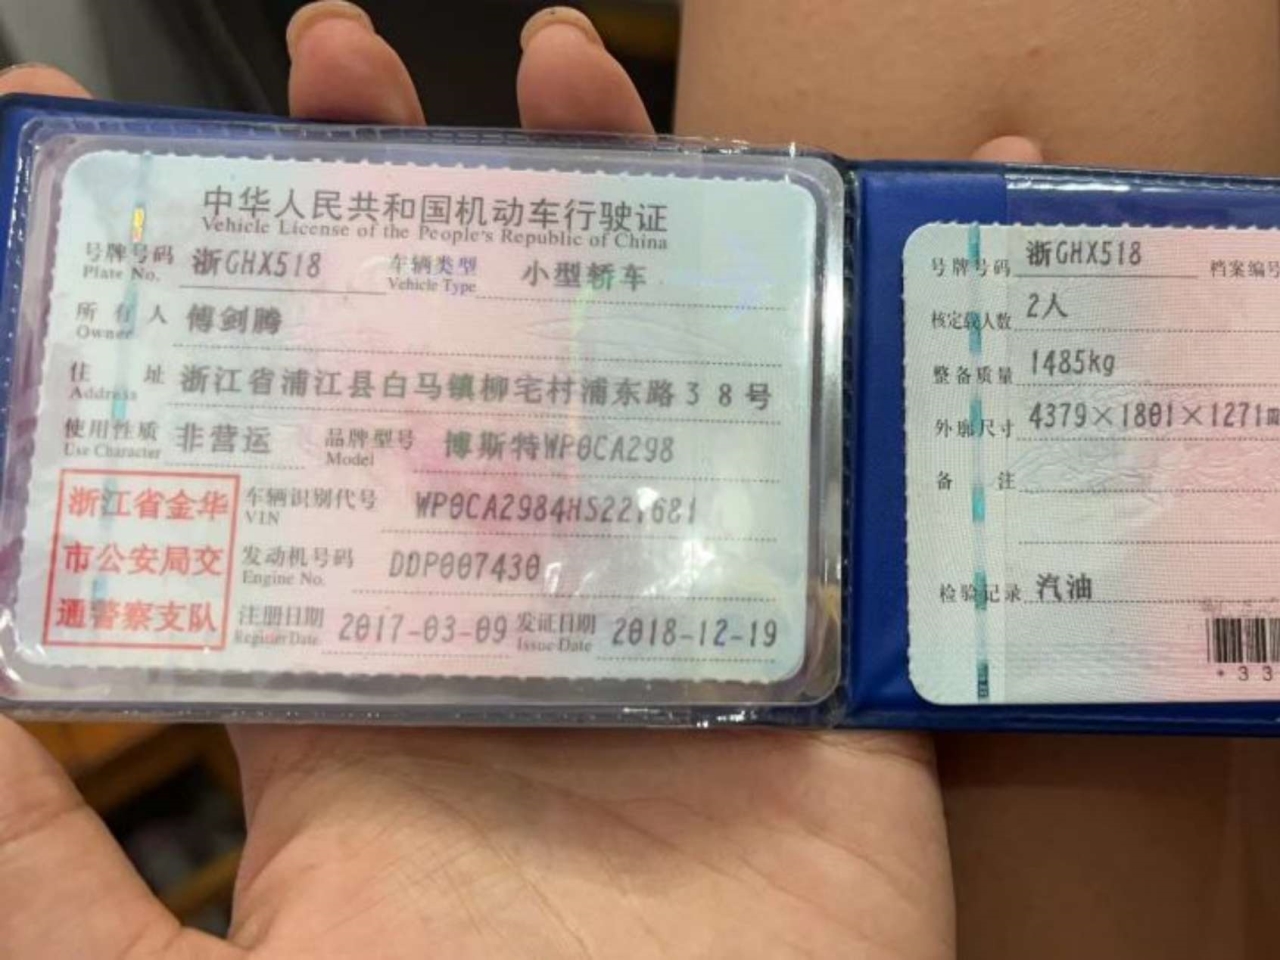 中华人民共和国机动车行驶证
Vehicle License of the People's Republic of China
号牌号码 浙GHX518 车辆类型 小型轿车
Plate No. Vehicle Type
所有人 傅剑腾
Owner
住址 浙江省浦江县白马镇柳宅村浦东路38号
Address
使用性质 非营运 品牌型号 博斯特WP0CA298
Use Character Model
浙江省金华
市公安局交
通警察支队
车辆识别代号
VIN
发动机号码 DDP007430
Engine No.
注册日期 2017-03-09 发证日期 2018-12-19
Register Date Issue Date
号牌号码 浙GHX518 档案编号
核定载人数 2人
整备质量 1485kg
外廓尺寸 4379×1801×1271
备注
检验记录 汽油
*33